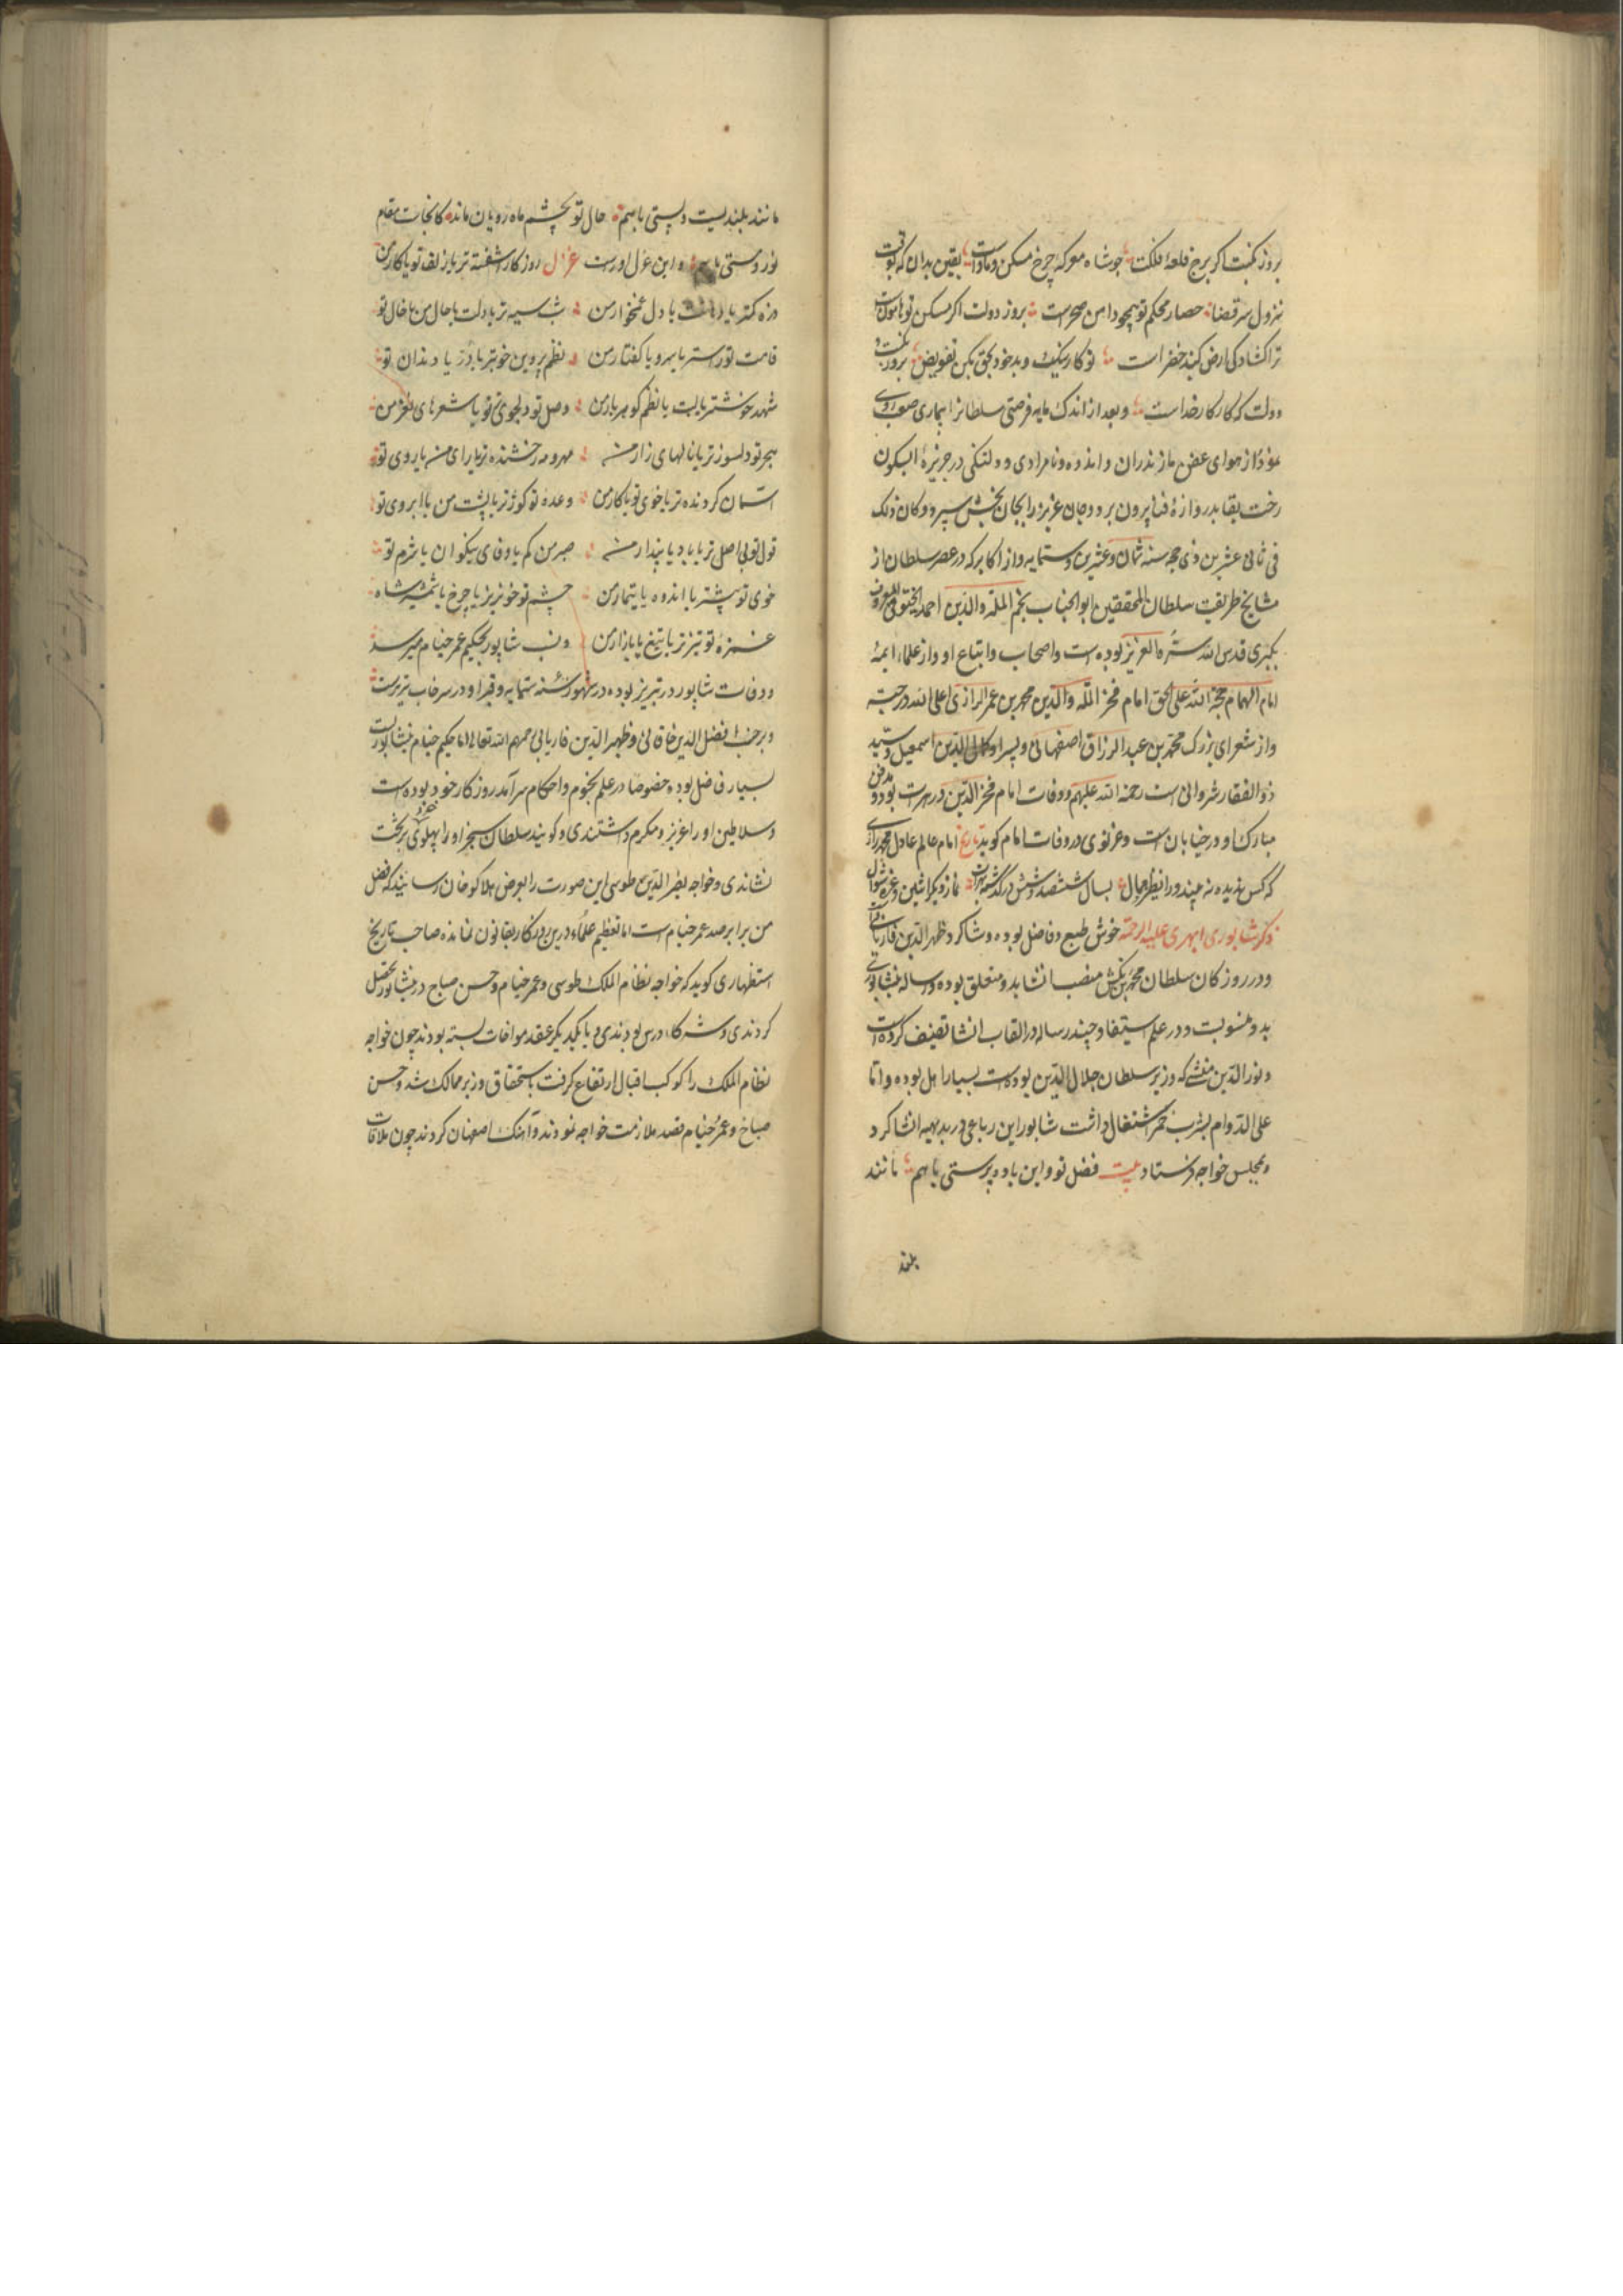 بروز نکبت اگر برج قلعه فلکت چو شاه معرکه چرخ مسکن و ماواست یقین بدان که بوقت
نزول سر قضا حصار محکم تو همچو دامن صحراست بروز دولت اگر مسکن تو هامونست
ترا کشادکی ارض کنبد خضراست تو کار نیک و بد خود بحق بکن تفویض بروز نکبت و
دولت که کار کار خداست و بعد از اندک مایه فرصتی سلطانرا بیماری صعب روی
نمود از هوای عفن مازندران و اندوه و نامرادی و دلتنکی در جزیره آبسکون
رخت بقا بدروازه فنا بیرون برد و جان عزیز را بجان بخش سپرد و کان ذلک
فی ثانی عشرین ذی حجه سنه ثمان و عشرین و ستمایه و از اکابر که در عصر سلطان از
مشایخ طریقت سلطان المحققین ابو الجناب نجم الملة والدین احمد الخیوقی المعروف
بکبری قدس الله سره العزیز بوده است و اصحاب و اتباع او و از علماء ایمه
امام الهمام حجة الله علی الحق امام فخر الملة والدین محمد بن عمر الرازی اعلی الله درجته
و از شعرای بزرک محمد بن عبد الرزاق اصفهانی و پسر او کمال الدین اسمعیل و سید
ذو الفقار شروانی است رحمة الله علیهم و وفات امام فخر الدین در هرات بود و مدفن
مبارک او در خیابان است و غزنوی در وفات امام کوید تاریخ امام عالم عادل محمد رازی
که کس ندیده نه بیند ورا نظیر و همال بسال ششصد و شش درکذشت بهرات نماز دیکر اثنین و غره شوال
ذکر شاپوری ابهری علیه الرحمة خوش طبع و فاضل بوده و شاکرد ظهیر الدین فاریابی
و در روزکان سلطان محمد بن تکش منصب انشا بدو متعلق بوده و رساله نیشابوری
بدو منسوبست و در علم استیفا و چند رساله در القاب انشا تصنیف کرده است
و نور الدین منشی که وزیر سلطان جلال الدین بوده است بسیار اهل بوده و اما
علی الدوام بشرب خمر اشتغال داشت شاپور این رباعی در بدیهه انشا کرد
و بمجلس خواجه فرستاد بیت فضل تو و این باده پرستی با هم مانند
بلند
مانند بلندیست و پستی با هم حال تو بچشم ماه رویان ماند کانجاست مقام
نور و مستی با هم و این غزل اوراست غزل روزکار اشفته تر یا زلف تو یا کار من
ذره کمتر یا دهانت یا دل غمخوار من شب سیه تر یا دلت یا حال من یا خال تو
قامت تو راستتر یا سرو یا کفتار من نظم پروین خوبتر یا در یا دندان تو
شهد خوشتر یا لبت یا نظم کوهربار من وصل تو دلجوی تر یا شعرهای نغز من
هجر تو دلسوزتر یا نالهای زار من مهر و مه رخشنده تر یا رای من یا روی تو
آسمان کردنده تر یا خوی تو یا کار من وعده تو کوژتر یا پشت من یا ابروی تو
قول تو بی اصل تر یا باد یا پندار من صبر من کم یا وفای نیکوان یا شرم تو
خوی تو بیشتر یا اندوه یا تیمار من چشم تو خونریز یا چرخ یا شمشیر شاه
غمزه تو تیزتر یا تیغ یا بازار من و نسب شاپور بحکیم عمر خیام میرسد
و وفات شاپور در تبریز بوده در شهور سنه ستمایه و قبر او در سرخاب تبریزست
و بر جنب افضل الدین خاقانی و ظهیر الدین فاریابی رحمهم الله تعالی اما حکیم خیام نیشابوریست
بسیار فاضل بوده خصوصا در علم نجوم و احکام سرآمد روزکار خود بوده است
و سلاطین او را عزیز و مکرم داشتندی و کویند سلطان سنجر او را پهلوی خود بر تخت
نشاندی و خواجه نصیر الدین طوسی این صورت را بعرض هلاکو خان رسانید که فضل
من برابر صد عمر خیام است اما تعظیم علماء درین روزکار بقانون نمانده صاحب تاریخ
استظهاری کوید که خواجه نظام الملک طوسی و عمر خیام و حسن صباح در نیشابور تحصیل
کردندی و شرکاء درس بودندی و با یکدیکر عقد مواخات بسته بودند چون خواجه
نظام الملک را کوکب اقبال ارتفاع کرفت باستحقاق وزیر ممالک شد و حسن
صباح و عمر خیام قصد ملازمت خواجه نمودند و آهنک اصفهان کردند چون ملاقات